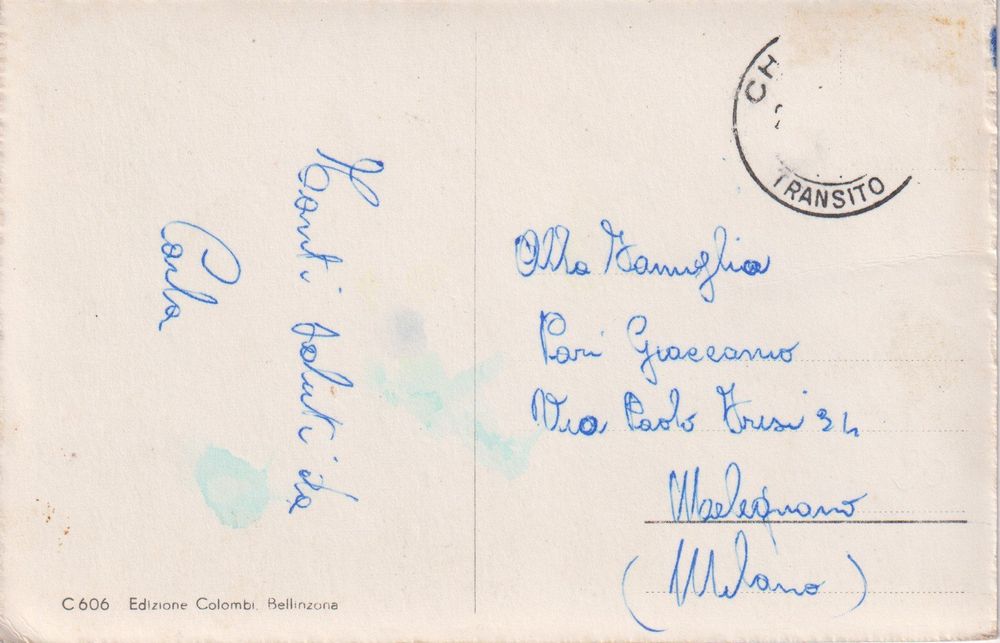 Tanti saluti da
Carla
CH
TRANSITO
Alla Famiglia
Pari Giaccamo
Via Paolo Frisi 34
Melegnano
(Milano)
C 606 Edizione Colombi. Bellinzona